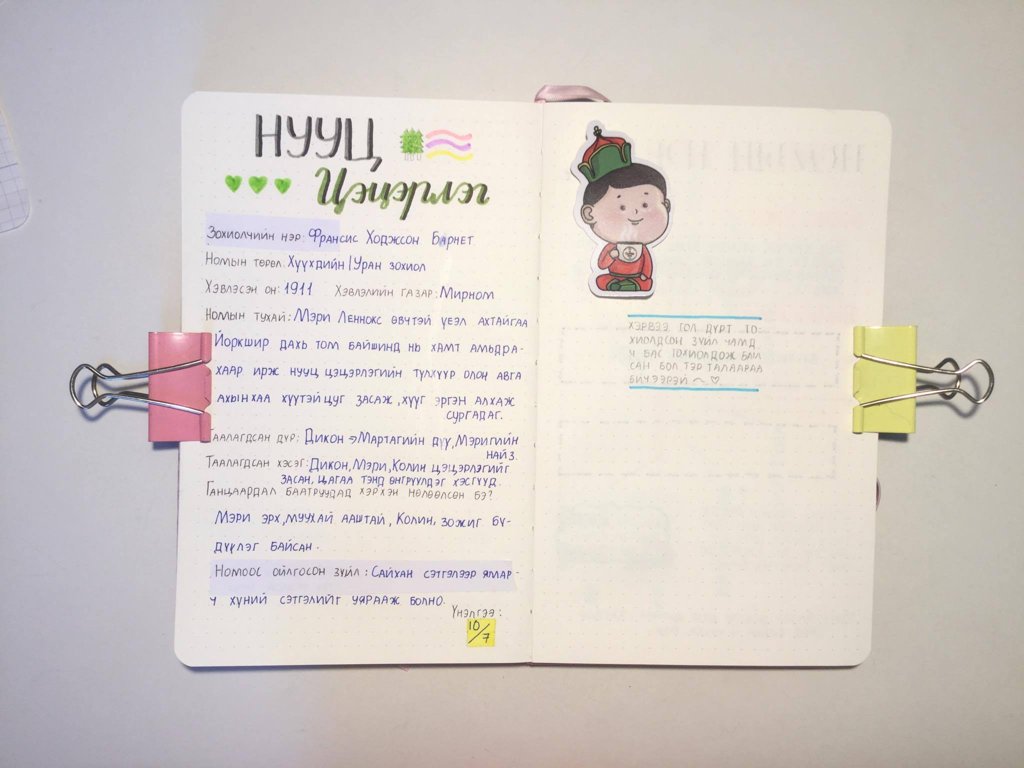 НУУЦ
Цэцэрлэг
Зохиолчийн нэр: Франсис Ходжсон Барнет
Номын төрөл: Хүүхдийн | Уран зохиол
Хэвлэсэн он: 1911 Хэвлэлийн газар: Мирном
Номын тухай: Мэри Леннокс өвчтэй үеэл ахтайгаа
Йоркшир дахь том байшинд нь хамт амьдра-
хаар ирж нууц цэцэрлэгийн түлхүүр олон авга
ахынхал хүүтэй цуг засаж, хүүг эргэн алхаж
сургадаг.
Таалагдсан дүр: Дикон → Мартагийн дүү, Мэригийн
найз.
Таалагдсан хэсэг: Дикон, Мэри, Колин цэцэрлэгийг
засан, цагал тэнд өнгрүүлдэг хэсгүүд.
Ганцаардал баатруудад хэрхэн нөлөөлсөн бэ?
Мэри эрх, муухай ааштай, Колин, зожиг бү-
дүүлэг байсан.
Номоос ойлгосон зүйл: Сайхан сэтгэлээр ямар-
ч хүний сэтгэлийг уярааж болно.
Үнэлгээ:
10/7
ХЭРВЭЭ ГОЛ ДҮРТ ТО-
ХИОЛДСОН ЗҮЙЛ ЧАМД
Ч БАС ТОХИОЛДОЖ БАЙ
САН БОЛ ТЭР ТАЛААРАА
БИЧЭЭРЭЙ ~ ♡.